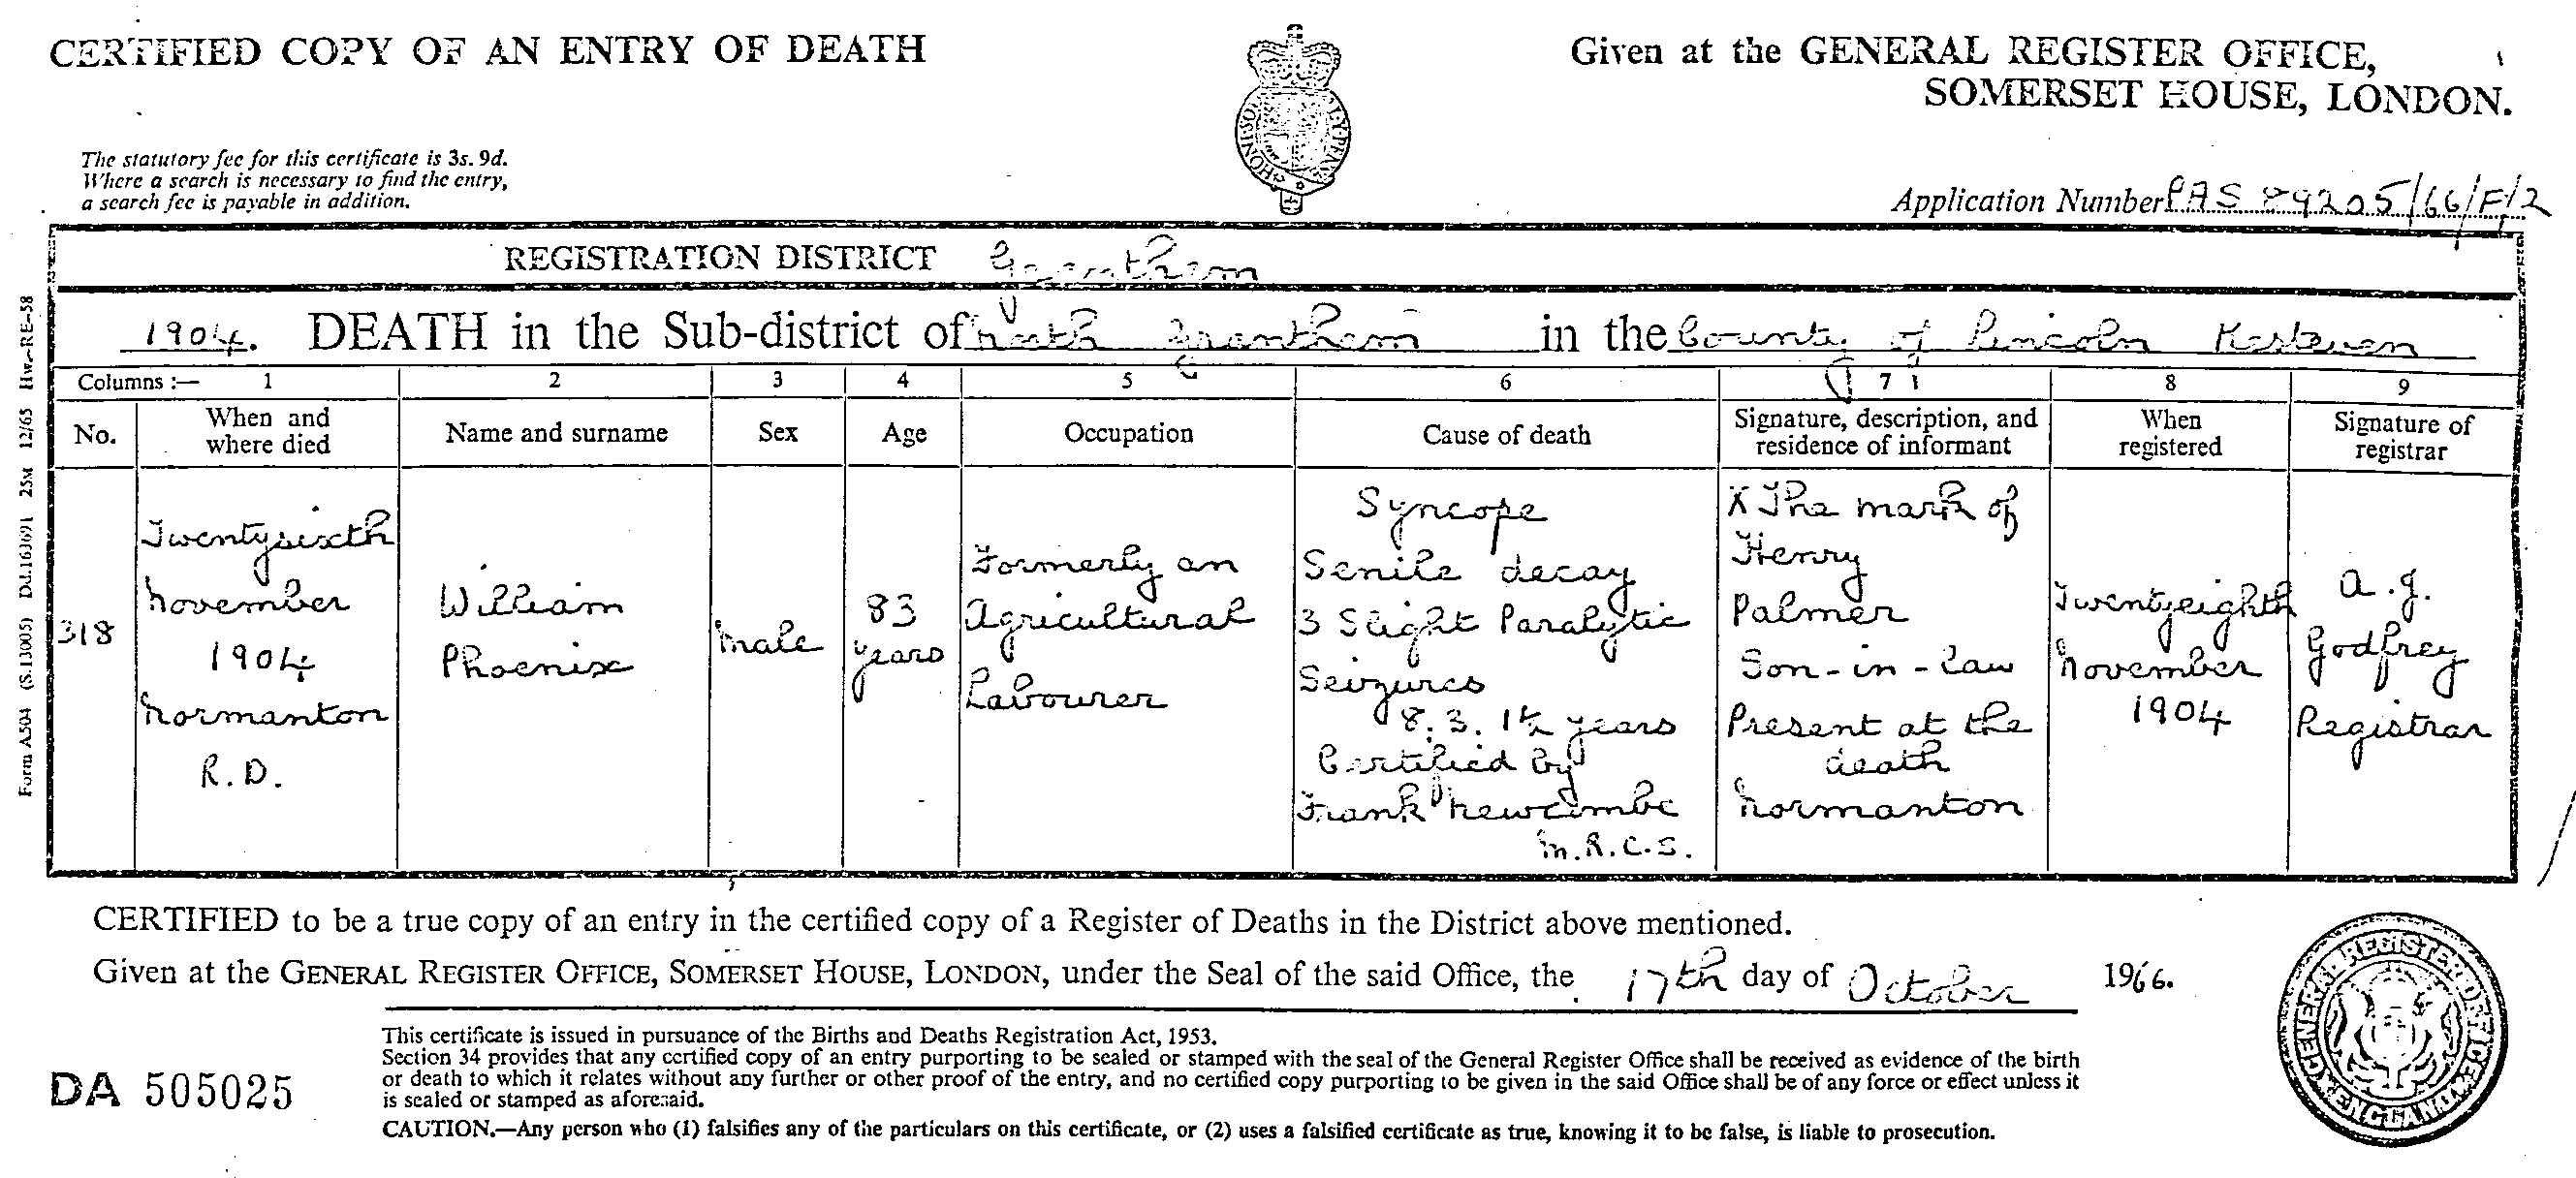 CERTIFIED COPY OF AN ENTRY OF DEATH
Given at the GENERAL REGISTER OFFICE,
SOMERSET HOUSE, LONDON.
The statutory fee for this certificate is 3s. 9d.
Where a search is necessary to find the entry,
a search fee is payable in addition.
Application Number PAS 89205/66/F/2
REGISTRATION DISTRICT Grantham
1904. DEATH in the Sub-district of North Grantham in the County of Lincoln Kesteven
Columns :— 1 2 3 4 5 6 7 8 9
No.
When and
where died
Name and surname
Sex
Age
Occupation
Cause of death
Signature, description, and
residence of informant
When
registered
Signature of
registrar
318
Twentysixth
November
1904
Normanton
R.D.
William
Phoenix
Male
83
years
Formerly an
Agricultural
Labourer
Syncope
Senile decay
3 Slight Paralytic
Seizures
8. 3. 1½ years
Certified by
Frank Newcombe
M.R.C.S.
X The mark of
Henry
Palmer
Son-in-law
Present at the
death
Normanton
Twentyeighth
November
1904
A. J.
Godfrey
Registrar
CERTIFIED to be a true copy of an entry in the certified copy of a Register of Deaths in the District above mentioned.
Given at the GENERAL REGISTER OFFICE, SOMERSET HOUSE, LONDON, under the Seal of the said Office, the 17th day of October 1966.
This certificate is issued in pursuance of the Births and Deaths Registration Act, 1953.
Section 34 provides that any certified copy of an entry purporting to be sealed or stamped with the seal of the General Register Office shall be received as evidence of the birth
or death to which it relates without any further or other proof of the entry, and no certified copy purporting to be given in the said Office shall be of any force or effect unless it
is sealed or stamped as aforesaid.
CAUTION.—Any person who (1) falsifies any of the particulars on this certificate, or (2) uses a falsified certificate as true, knowing it to be false, is liable to prosecution.
DA 505025
GENERAL REGISTER OFFICE ENGLAND
Form A504 (S.13005) Dd.163691 25M 12/65 Hw.-RE-58